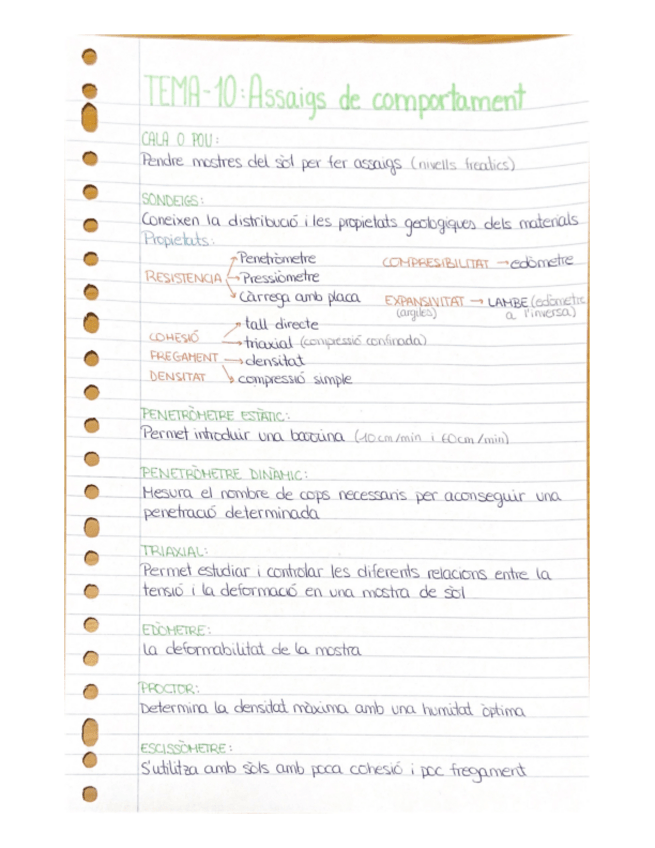 TEMA-10: Assaigs de comportament
CALA O POU:
Pendre mostres del sòl per fer assaigs (nivells freàtics)
SONDEIGS:
Coneixen la distribució i les propietats geologiques dels materials
Propietats:
RESISTENCIA → Penetròmetre
→ Pressiòmetre
→ Càrrega amb placa
COMPRESIBILITAT → edòmetre
EXPANSIVITAT → LAMBE (edòmetre
(argiles) a l'inversa)
COHESIÓ
FREGAMENT
DENSITAT
→ tall directe
→ triaxial (compressió confinada)
→ densitat
→ compressió simple
PENETRÒMETRE ESTÀTIC:
Permet introduir una barrina (40cm/min i 60cm/min)
PENETRÒMETRE DINÀMIC:
Mesura el nombre de cops necessaris per aconseguir una
penetració determinada
TRIAXIAL:
Permet estudiar i controlar les diferents relacions entre la
tensió i la deformació en una mostra de sòl
EDÒMETRE:
La deformabilitat de la mostra
PROCTOR:
Determina la densitat màxima amb una humitat òptima
ESCISSÒMETRE:
S'utilitza amb sòls amb poca cohesió i poc fregament